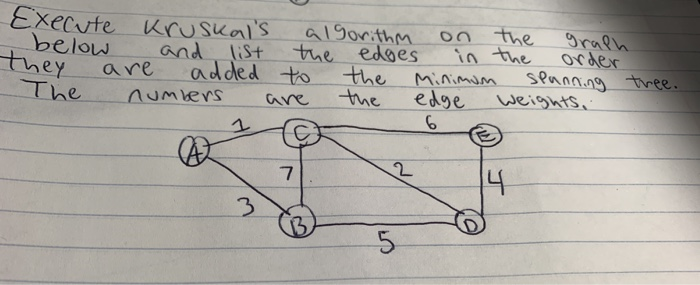 Execute Kruskal's algorithm on the graph
below and list the edges in the order
they are added to the minimum spanning tree.
The numbers are the edge weights.
1 C 6 E
A
7 2 4
3
B D
5